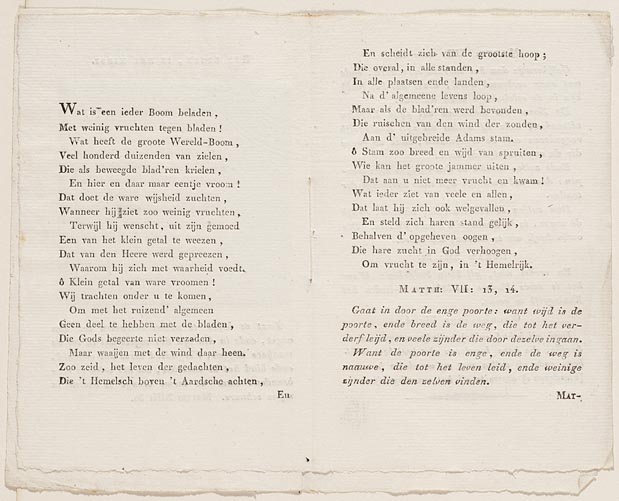 Wat is een ieder Boom beladen,
Met weinig vruchten tegen bladen!
Wat heeft de groote Wereld-Boom,
Veel honderd duizenden van zielen,
Die als beweegde blad'ren krielen,
En hier en daar maar eentje vroom!
Dat doet de ware wijsheid zuchten,
Wanneer hij ziet zoo weinig vruchten,
Terwijl hij wenscht, uit zijn gemoed
Een van het klein getal te weezen,
Dat van den Heere werd gepreezen,
Waarom hij zich met waarheid voedt.
ô Klein getal van ware vroomen!
Wij trachten onder u te komen,
Om met het ruizend' algemeen
Geen deel te hebben met de bladen,
Die Gods begeerte niet verzaden,
Maar waaijen met de wind daar heen.
Zoo zeid, het leven der gedachten,
Die 't Hemelsch boven 't Aardsche achten,
En
En scheidt zich van de grootste hoop;
Die overal, in alle standen,
In alle plaatsen ende landen,
Na d' algemeene levens loop,
Maar als de blad'ren werd bevonden,
Die ruischen van den wind der zonden,
Aan d' uitgebreide Adams stam.
ô Stam zoo breed en wijd van spruiten,
Wie kan het groote jammer uiten,
Dat aan u niet meer vrucht en kwam!
Wat ieder ziet van veele en allen,
Dat laat hij zich ook welgevallen,
En steld zich haren stand gelijk,
Behalven d' opgeheven oogen,
Die hare zucht in God verhoogen,
Om vrucht te zijn, in 't Hemelrijk.
MATTH: VII: 13, 14.
Gaat in door de enge poorte: want wijd is de
poorte, ende breed is de weg, die tot het ver-
derf leijd, en veele zijnder die door dezelve ingaan.
Want de poorte is enge, ende de weg is
naauwe, die tot het leven leid, ende weinige
zijnder die den zelven vinden.
MAT-